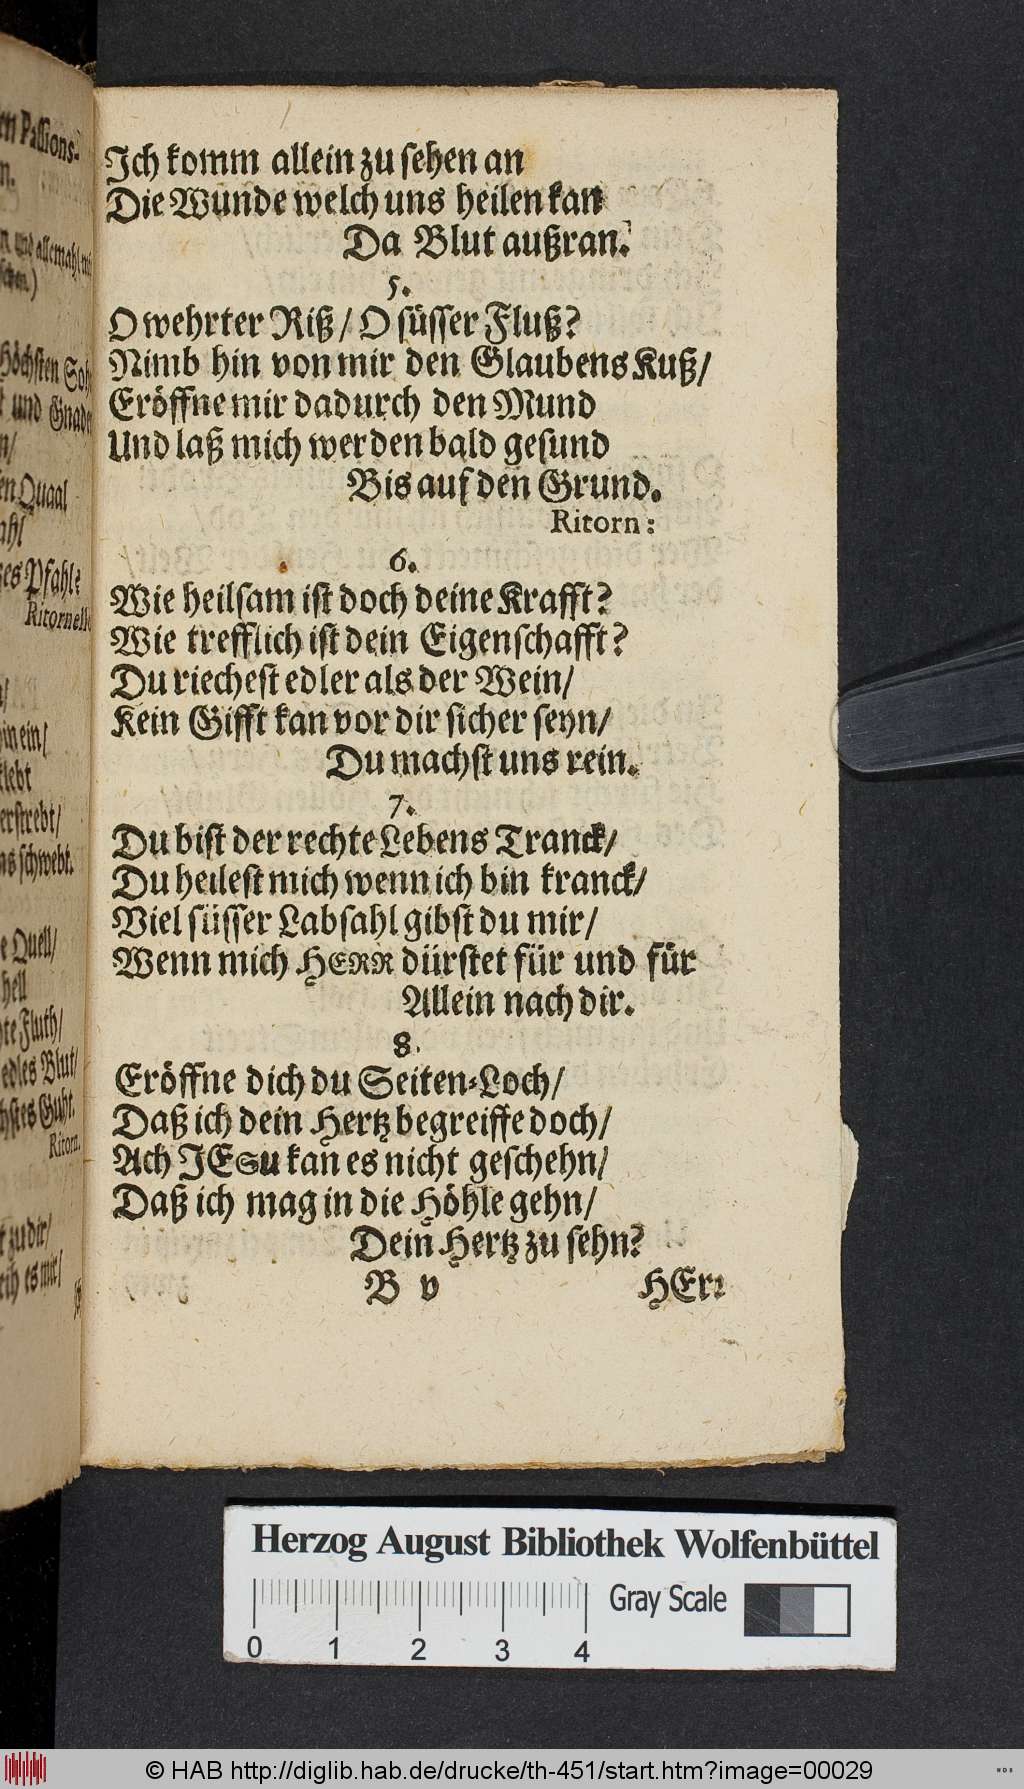 en Passions-
n.
n und allemahl
Höchsten Soh
t und Gnade
n/
en Quaal
ahl
es Pfahl?
Ritornell
in ein/
klebt
erstrebt/
ns schwebt.
e Quell/
hell
te Fluth/
edles Blut/
hstes Guht.
Ritorn.
t zu dir/
eih es mir/
Ich komm allein zu sehen an
Die Wunde welch uns heilen kan
Da Blut außran.
5.
O wehrter Riß / O süsser Fluß?
Nimb hin von mir den Glaubens Kuß/
Eröffne mir dadurch den Mund
Und laß mich werden bald gesund
Bis auf den Grund.
Ritorn:
6.
Wie heilsam ist doch deine Krafft?
Wie trefflich ist dein Eigenschafft?
Du riechest edler als der Wein/
Kein Gifft kan vor dir sicher seyn/
Du machst uns rein.
7.
Du bist der rechte Lebens Tranck/
Du heilest mich wenn ich bin kranck/
Viel süsser Labsahl gibst du mir/
Wenn mich HERR dürstet für und für
Allein nach dir.
8.
Eröffne dich du Seiten-Loch/
Daß ich dein Hertz begreiffe doch/
Ach JEsu kan es nicht geschehn/
Daß ich mag in die Höhle gehn/
Dein Hertz zu sehn?
B v HErr
Herzog August Bibliothek Wolfenbüttel
0 1 2 3 4 Gray Scale
© HAB http://diglib.hab.de/drucke/th-451/start.htm?image=00029